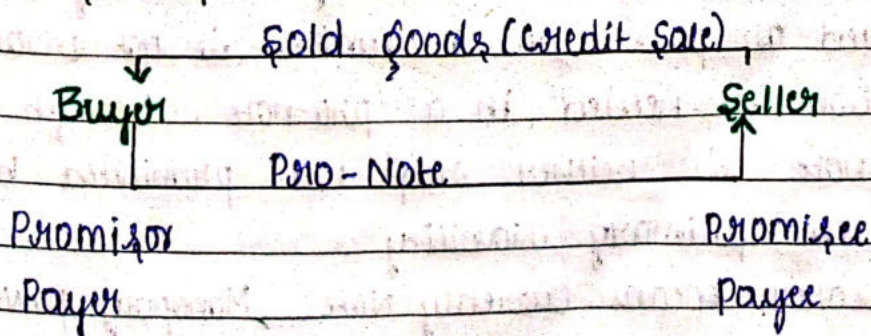 Sold goods (Credit Sale)
Buyer Seller
Pro-Note
Promisor Promisee
Payer Payee